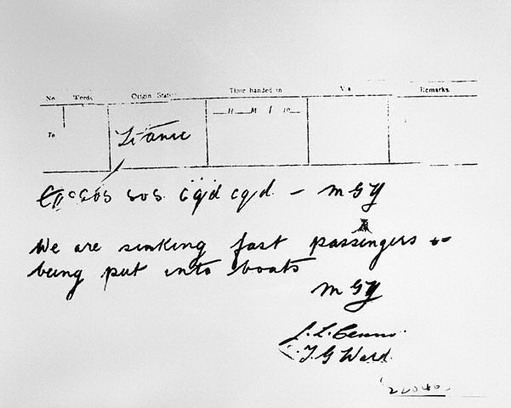 No. Words. Origin. Station. Time handed in. Via. Remarks.
To
Titanic
11 H. M. 10
SOS SOS cqd cqd - MGY
We are sinking fast passengers
being put into boats
MGY